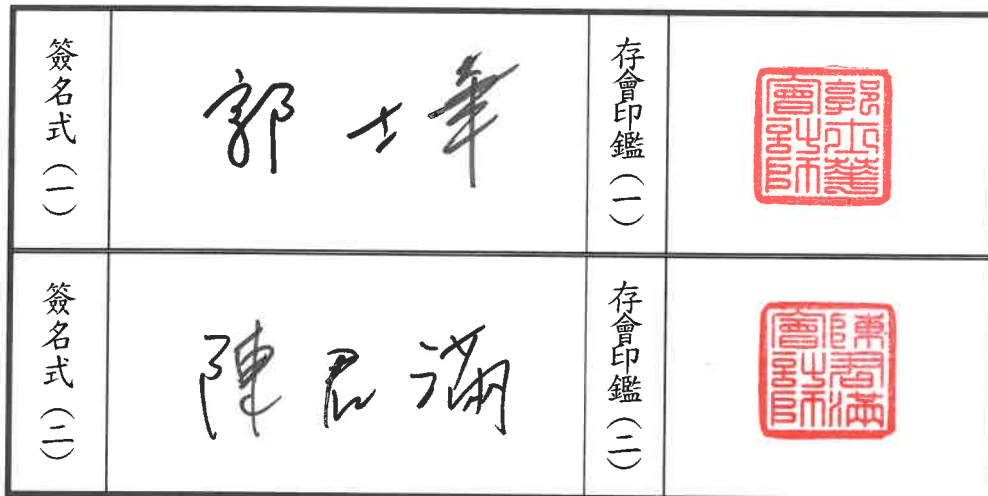 簽名式(一)
郭士華
存會印鑑(一)
郭士華
會計師
簽名式(二)
陳君滿
存會印鑑(二)
陳君滿
會計師